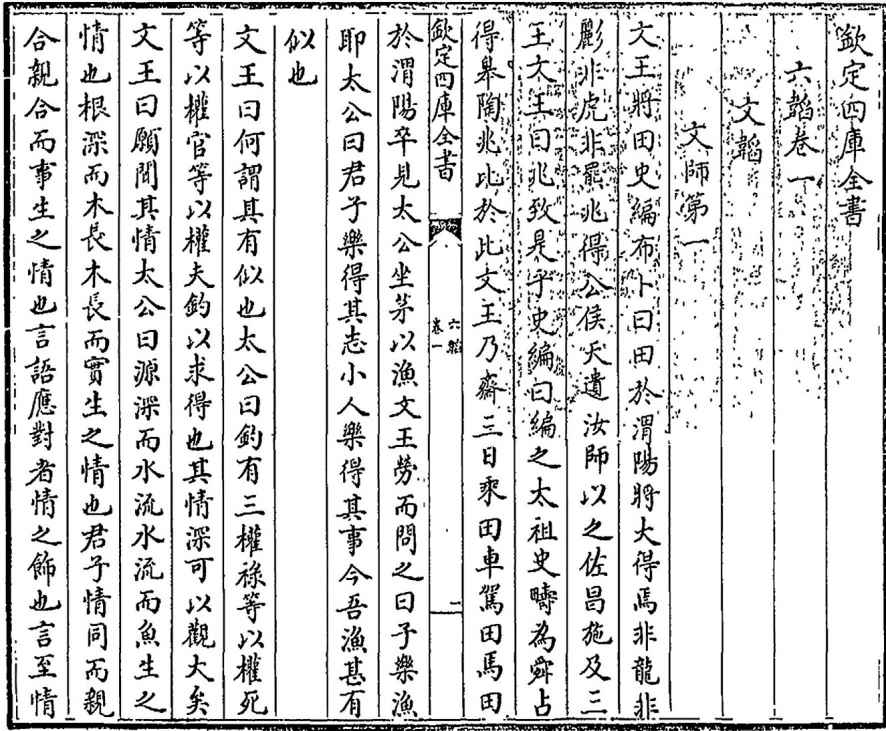 欽定四庫全書
六韜卷一
文韜
文師第一
文王將田史編布卜曰田於渭陽將大得焉非龍非
彲非虎非羆兆得公侯天遺汝師以之佐昌施及三
王文王曰兆致是乎史編曰編之太祖史疇為舜占
得皋陶兆比於此文王乃齋三日乘田車駕田馬田
欽定四庫全書
六韜
卷一
二
於渭陽卒見太公坐茅以漁文王勞而問之曰子樂漁
耶太公曰君子樂得其志小人樂得其事今吾漁甚有
似也
文王曰何謂其有似也太公曰釣有三權祿等以權死
等以權官等以權夫釣以求得也其情深可以觀大矣
文王曰願聞其情太公曰源深而水流水流而魚生之
情也根深而木長木長而實生之情也君子情同而親
合親合而事生之情也言語應對者情之飾也言至情